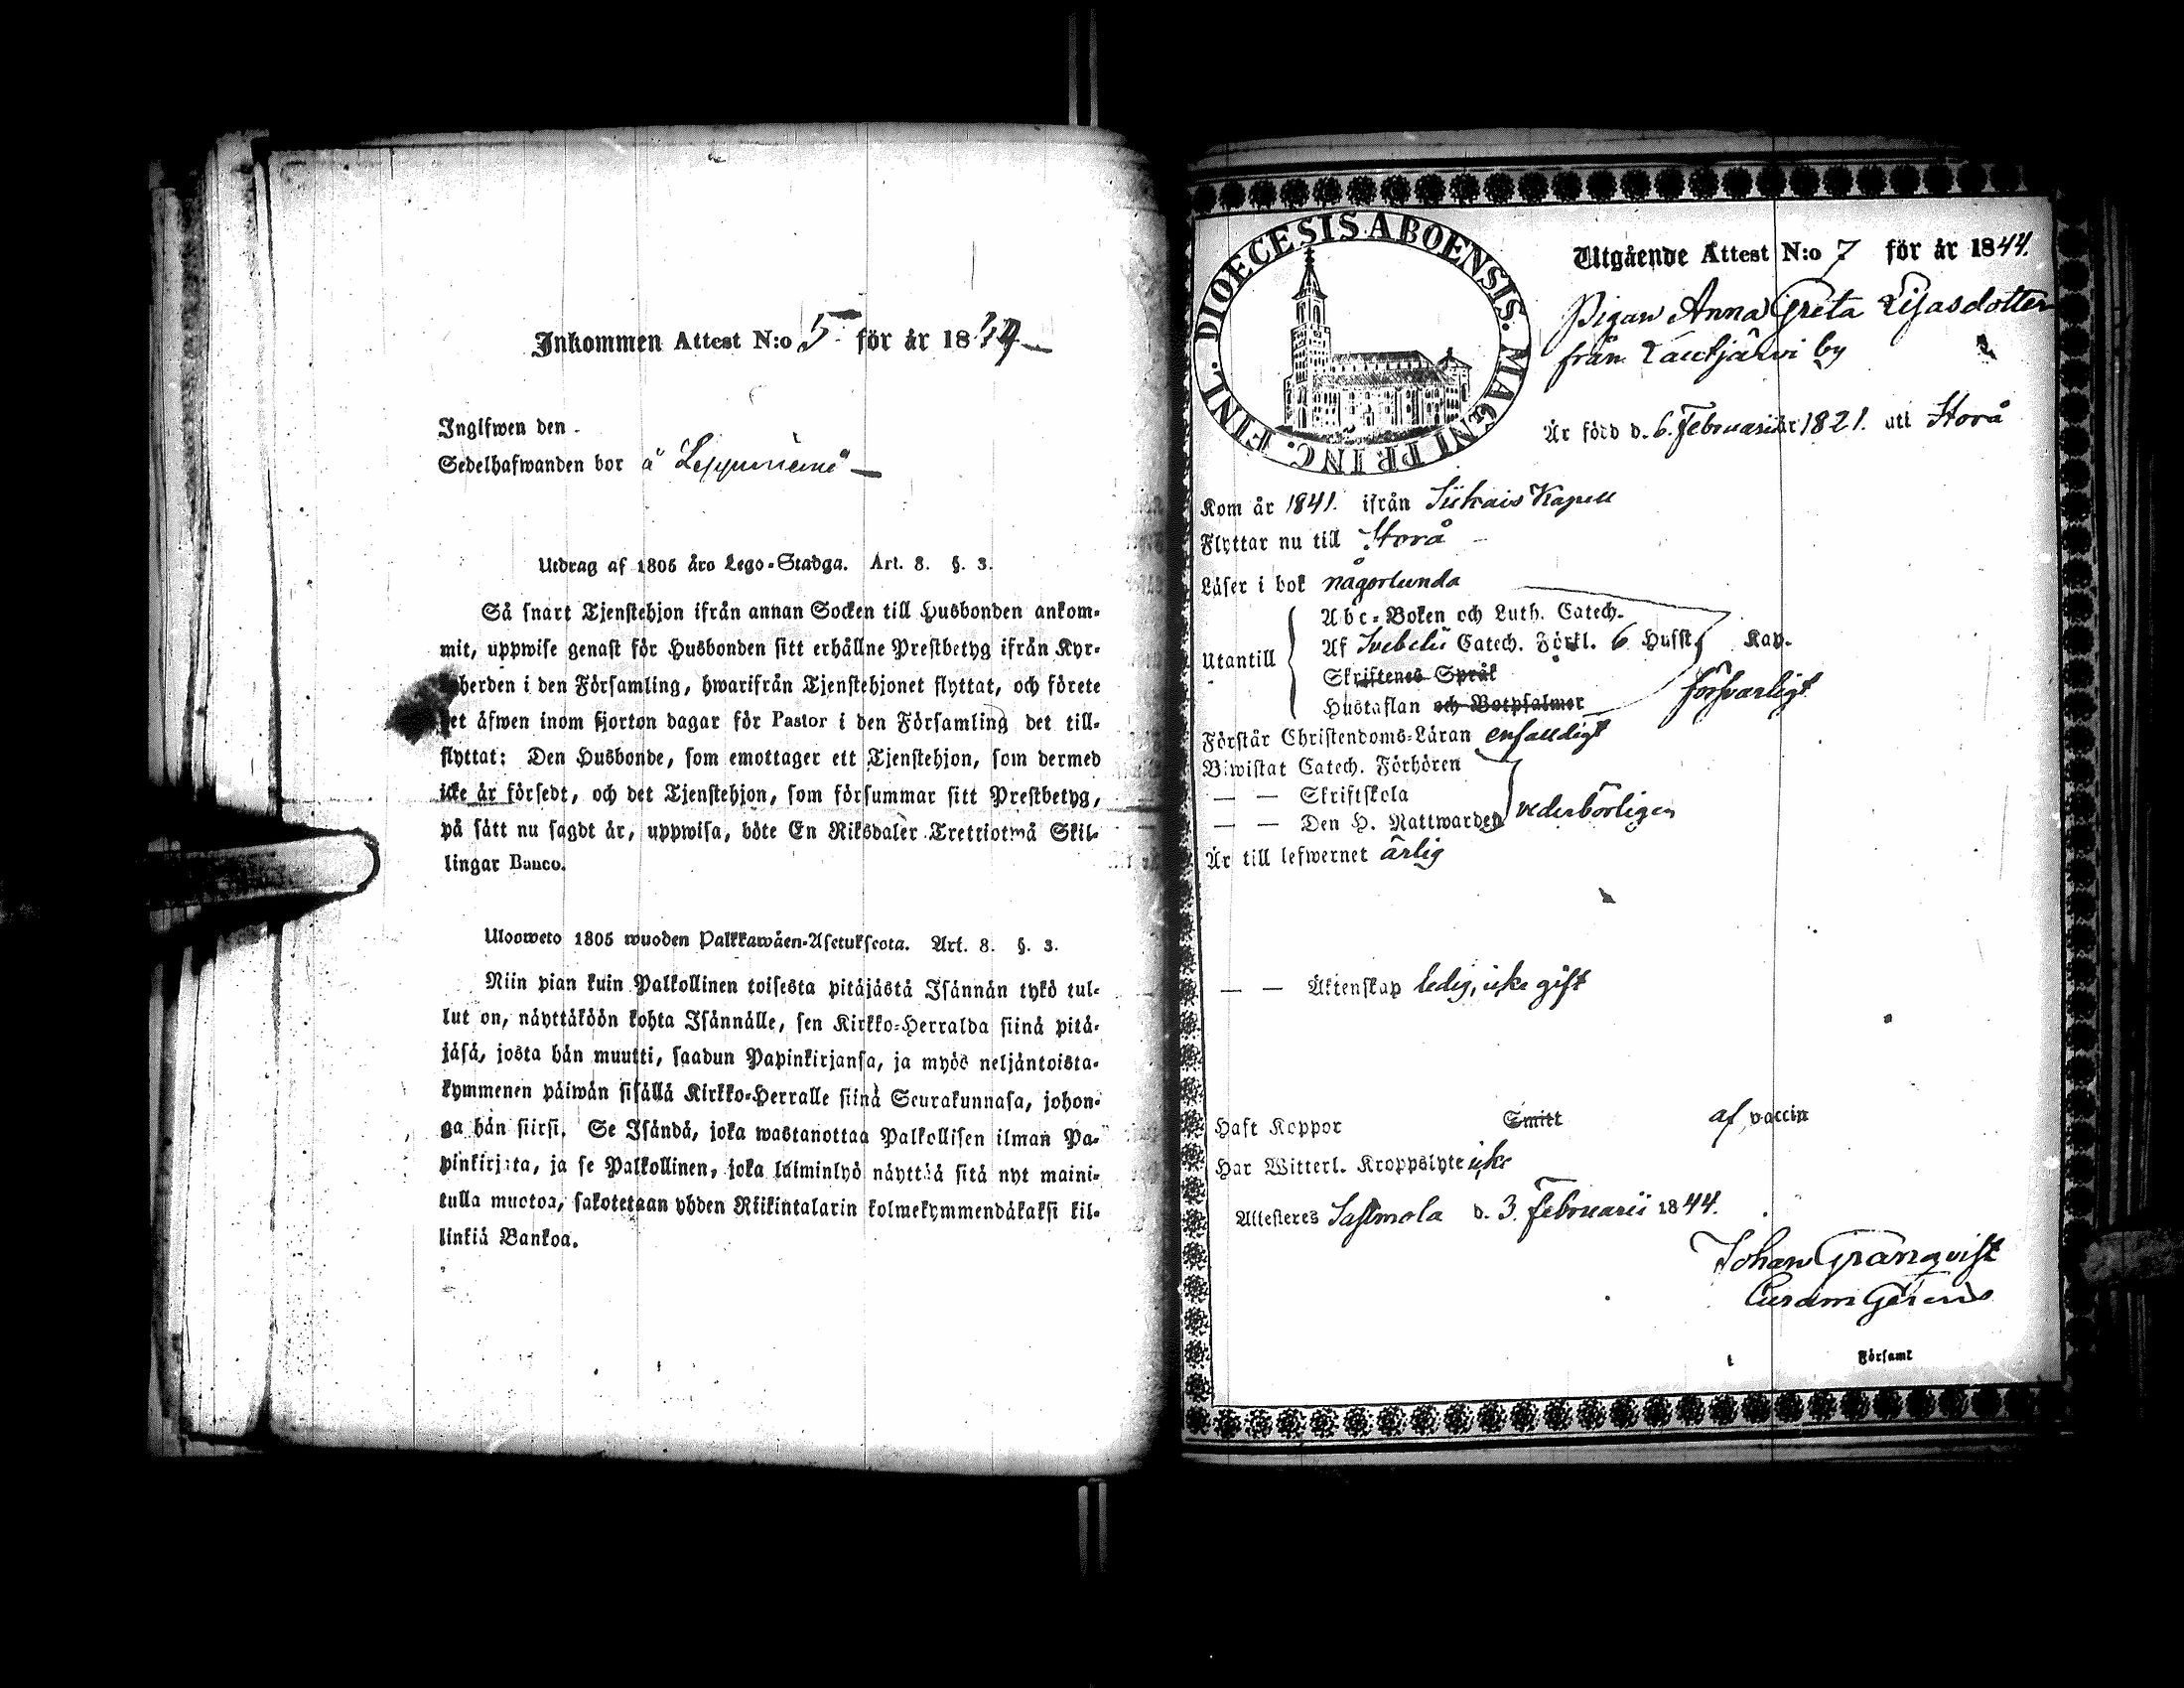 Inkommen Attest N:o 5 för år 1844
Ingifwen den
Sedelhafwanden bor å
Utdrag af 1805 års Lego-Stadga. Art. 8. §. 3.
Så snart Tjenstehjon ifrån annan Socken till Husbonden ankom-
mit, uppwise genast för Husbonden sitt erhållne Prestbetyg ifrån Kyr-
koherden i den Församling, hwarifrån Tjenstehjonet flyttat, och förete
det äfwen inom fjorton dagar för Pastor i den Församling det till-
flyttat: Den Husbonde, som emottager ett Tjenstehjon, som dermed
icke är försedt, och det Tjenstehjon, som försummar sitt Prestbetyg,
på sått nu sagdt är, uppwisa, böte En Riksdaler Trettiotwå Skil-
lingar Banco.
Ulosweto 1805 wuoden Palkkawäen-Asetuksesta. Art. 8. §. 3.
Niin pian kuin Palkollinen toisesta pitäjästä Isännän tykö tul-
lut on, näyttäköön kohta Isännälle, sen Kirkko-Herralda siinä pitä-
jäsä, josta hän muutti, saadun Papinkirjansa, ja myös neljäntoista-
kymmenen päiwän sisällä Kirkko-Herralle siinä Seurakunnasa, johon-
ga hän siirsi. Se Isändä, joka wastanottaa Palkollisen ilman Pa-
pinkirjata, ja se Palkollinen, joka laiminlyö näyttää sitä nyt maini-
tulla muotoa, sakotetaan yhden Riikintalarin kolmekymmendäkaksi kil-
linkiä Bankoa.
DIOECESIS ABOENSIS. MAGNI PRINC. FINL.
Utgående Attest N:o 7 för år 1844.
Pigan Anna Greta Eljasdotter
från Lautjärwi by
Är född d. 6. Februarii år 1821. uti Storå
Kom år 1841. ifrån Siikais Kapell
Flyttar nu till Storå
Läser i bok någorlunda
Abc-Boken och Luth. Catech.
Af Svebelii Catech. Förkl. 6 Hufst. Kap.
Utantill
Skriftenes Språk
försvarligt
Hustaflan och Botpsalmer
Förstår Christendoms-Läran enfaldigt
Biwistat Catech. Förhören
— — Skriftskola
— — Den H. Nattwarden vederbörligen
Är till lefwernet ärlig
— — Äktenskap ledig, icke gift
Haft Koppor Smitt af vaccin
Har Witterl. Kroppslyte icke
Attesteres Sastmola d. 3. Februarii 1844.
Johan Granqvist
Curam Gerens
Församl